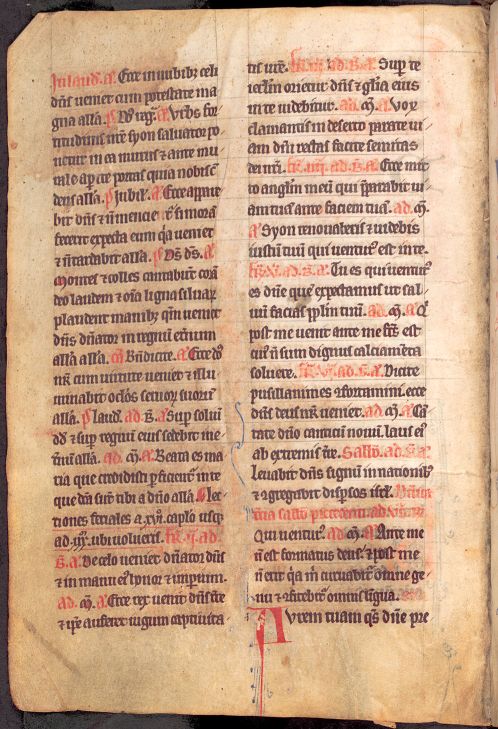 In laud. a̅. Ecce in nubibꝫ celi
dn̄s veniet cum potestate ma
gna all̅a. p̅ a̅. Vrbs for
titudinis nr̄e syon saluator po
netur in ea murus ⁊ ante mu
rale apite portas quia nobiscū
deus all̅a. p̅ iubil. a̅. Ecce appare
bit dn̄s ⁊ n̄ menciet᷑ si moram
fecerit expecta eum qͣ veniet
⁊ n̄ tardabit all̅a. p̅ Ds̄ ds̄. a̅.
Montes ⁊ colles cantabūt corā
deo laudem ⁊ oīa ligna siluaꝝ
plaudent manibꝫ qm̄ veniet
dn̄s dn̄ator in regnū et̄num
all̅a all̅a. Bn̄dicite. a̅. Ecce dn̄s
nr̄ cum virtute veniet ⁊ illu
minabit oclōs seruoꝝ suoꝝ
all̅a. p̅ laud. ad B. a̅. Sup soliū
dd̄ ⁊ sup regnū eius sedebit in e
t̄nū all̅a. ad m̄. a̅. Beata es ma
ria que credidisti pficient᷑ in te
que dc̄a sūt tibi a dn̄o all̅a. lec
tiones feriales a xvi. caplo usqꝫ
ad xxx. ubi volueris. fr̄. ii. ad
B. a̅. De celo veniet dn̄ator dn̄s
⁊ in manu eiꝰ honor ⁊ imperium.
ad m̄. a̅. Ecce rex veniet dn̄s t̄re
⁊ ip̄e auferet iugum captiuita-
tis nr̄e. fr̄. iii. ad. B. a̅. Sup te
ierl̄m orietur dn̄s ⁊ gl̄ia eius
in te videbitur. ad. m̄. a̅. Vox
clamantis in deserto parate vi
am dn̄i rectas facite semitas
dei nr̄i. fr̄. iiii. ad. B. a̅. Ecce mit
to angl̄m meū qui p̄parabit vi
am tuā ante faciem tuā. ad. m̄.
a̅ Syon renouaberis ⁊ videbis
iustū tuū qui ventur᷒ est in te.
ad. B. a̅. Tu es qui ventur᷒
es dn̄e quē expectamus ut sal
uū facias pplm̄ tuū. ad. m̄. a̅ Qͥ
post me venit ante me fcūs est
cuiꝰ n̄ sum dignus calciam̄ta
soluere. ad. B. a̅. Dicite
pusillanimes ꝯfortamini. ecce
dn̄s deus nr̄ veniet. ad. m̄. a̅. Cā
tate dn̄o canticū nouū. laus eiꝰ
ab extremis t̄re. Sabb̄o. ad. B. a̅
Leuabit dn̄s signū in nationibꝫ
⁊ ꝯgregabit dispsos isrl̄.
Qui venturꝰ ad m̄. a̅ Ante me
n̄ est formatus deus. ⁊ post me
n̄ erit qͣ m̄ curuabit᷑ omne ge-
nu ⁊ ꝯfitebit᷑ omnis lingua.
Aurem tuam q̄s dn̄e pre